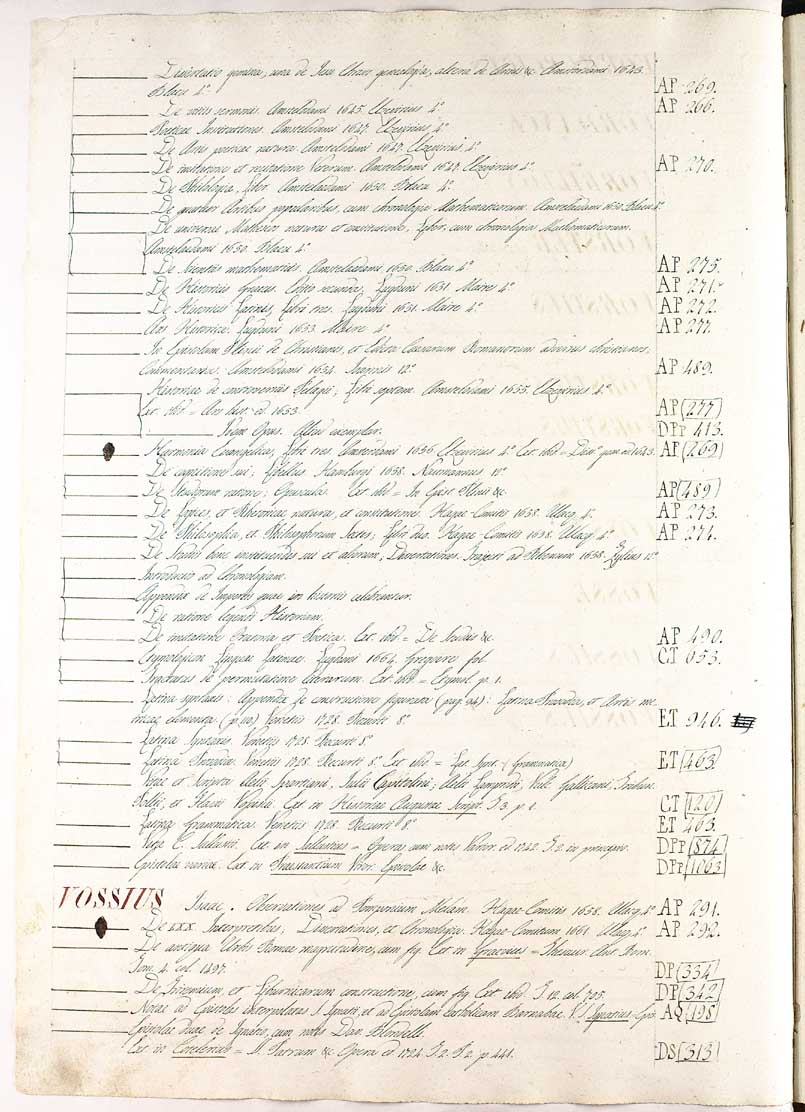 Dissertatio gemina, una de Jesu Christi genealogia, altera de Annis &c. Amstelodami 1643.
Blaeu 4° AP 269.
De vitiis sermonis. Amsteldami 1645. Elzevirius 4° AP 266.
Poeticae Institutiones. Amsteldami 1647. Elzevirius 4°
De Artis poeticae natura. Amsteldami 1647. Elzevirius 4°
De imitatione et recitatione Veterum. Amsteldami 1647. Elzevirius 4° AP 270.
De Philologia, Liber. Amstelaedami 1650. Blaeu 4°
De quatuor Artibus popularibus, cum chronologia Mathematicorum. Amstelodami 1650. Blaeu 4°
De universae Matheseos natura et constitutione, Liber, cum chronologia Mathematicorum.
Amstelaedami 1650. Blaeu 4°
De scientiis mathematicis. Amstelaedami 1650. Blaeu 4° AP 275.
De Historicis Graecis. Editio secunda. Lugduni 1651 Maire 4° AP 271.
De Historicis Latinis, Libri tres. Lugduni 1651. Maire 4° AP 272.
Ars Historica. Lugduni 1653. Maire 4° AP 277.
In Epistolam Plinii de Christianis, et Edicta Caesarum Romanorum adversus christianos,
Commentarius. Amsteldami 1654. 12° AP 489.
Historiae de controversiis Pelagii, Libri septem. Amsteldami 1655. Elzevirius 4°
Est ibid = Ars hist. ed 1653. AP (277)
Idem Opus. Aliud exemplar. DPp 413.
Harmonia Evangelica, Libri tres. Amsterdami 1656. Elzevirius 4° Est ibid = gem ed 1643. AP (269)
De cognitione sui, Libellus. Hamburgi 1658. Naumannus 12°
De Studiorum ratione, Opuscula. Est ibid = In Epist. Plinii &c. AP (489)
De Logices, et Rhetoricae natura, et constitutione. Hagae-Comitis 1658. Ulacq. 4° AP 273.
De Philosophia, et Philosophorum Sectis, Libri duo. Hagae-Comitis 1658. Ulacq. 4° AP 274.
De Studii bene instituendis sui et aliorum, Dissertatiunculae. Trajecti ad Rhenum 1658. 12°
Introductio ad Chronologiam.
Appendix de
De ratione legendi Historiam.
De imitatione Oratoria et Poetica. Est ibid = De Studiis &c. AP 490.
Etymologicon Linguae Latinae. Lugduni 1664. Gregoire fol. CT 053.
Tractatus de permutatione litterarum. Est ibid = Etymol. p. 1.
Latina syntaxis: Appendix de constructione figurata (pag. 94): Latina Prosodia, et Artis me-
tricae elementa (p. 110) Venetiis 1728. Recurti 8° ET 946.
Latina Syntaxis. Venetiis 1728. Recurti 8°
Latina Prosodia. Venetiis 1728. Recurti 8° Est ibid = Lat. Synt. (Grammatica) ET (463)
Notae et Scripta Aelii Spartiani, Julii Capitolini, Aelii Lampridii, Vulc. Gallicani, Trebon.
Pollii, et Flavii Vopisci. Est in Historiae Augustae Script. T. 3. p. 1. CT (120)
Latina Grammatica. Venetiis 1728. Recurti 8° ET 463.
Vita C. Sallustii. Est in Sallustius = Opera cum notis Varior. ed 1742. T. 2. in principio. DPp (874)
Epistolae variae. Est in Praestantium Viror. Epistolae &c. DPp (1063)
VOSSIUS Isaac. Observationes ad Pomponium Melam. Hagae-Comitis 1658. Ulacq 4° AP 291.
De LXX Interpretibus, Dissertationes, et Chronologia. Hagae-Comitum 1661. Ulacq 4° AP 292.
De antiqua Urbis Romae magnitudine, cum fig. Est in Graevius = Thesaur. Ant. Rom.
Tom. 4. col. 1497. DP (334)
De Triremium et Liburnicarum constructione, cum fig. Est ibid. T. 12. col. 705. DP (342)
Notae ad Epistolas interpolatas S. Ignatii, et ad Epistolam Catholicam Barnabae. V. S. Ignatius Epis. AS (198)
Epistolae duae de Ignatio, cum notis Dav. Blondelli.
Est in Cotelerius = S. Patrum &c. Opera ed 1724. T. 2. P. 2. p. 441. DS (313)